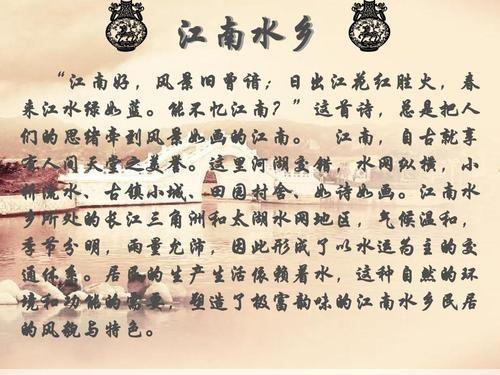 江南水乡
“江南好，风景旧曾谙；日出江花红胜火，春
来江水绿如蓝。能不忆江南？”这首诗，总是把人
们的思绪牵到风景如画的江南。 江南，自古就享
有人间天堂之美誉。这里河湖交错，水网纵横，小
桥流水、古镇小城、田园村舍、如诗如画。江南水
乡所处的长江三角洲和太湖水网地区，气候温和，
季节分明，雨量充沛，因此形成了以水运为主的交
通体系。居民的生产生活依赖着水，这种自然的环
境和功能的需要，塑造了极富韵味的江南水乡民居
的风貌与特色。